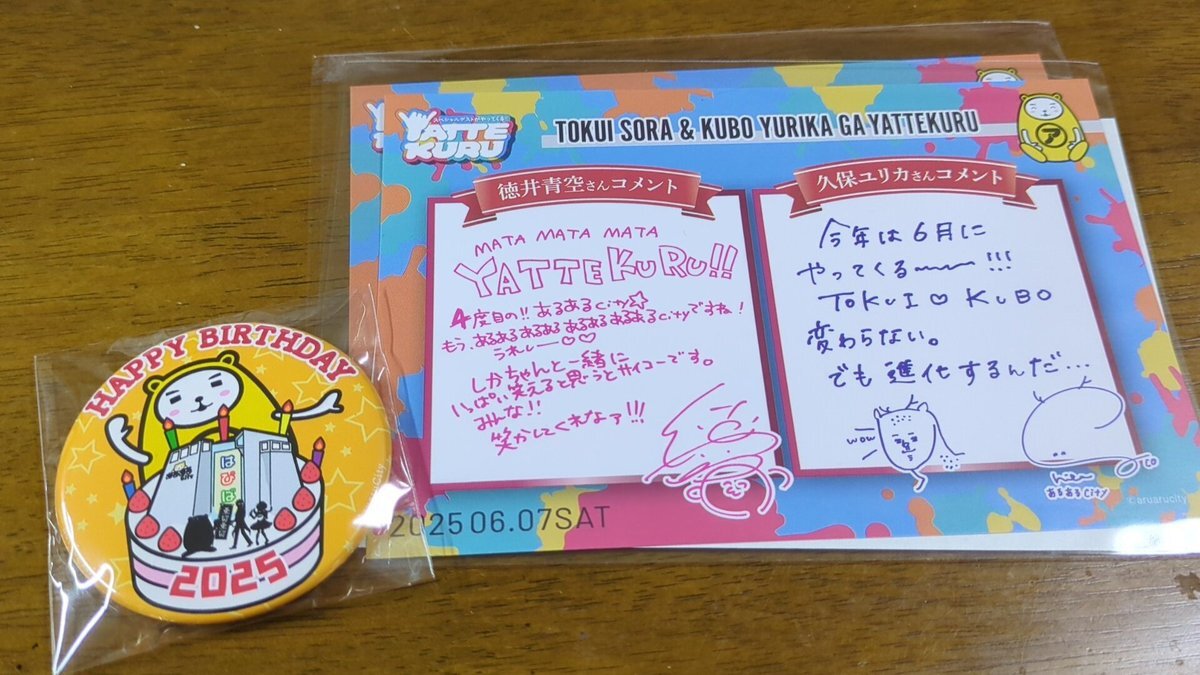 スペシャルゲストがやってくる
YATTE
KURU
TOKUI SORA & KUBO YURIKA GA YATTEKURU
ア
徳井青空さんコメント
MATA MATA MATA
YATTEKURU!!
4度目の!! あるあるCity☆
もう、あるあるあるある あるあるあるあるCityですね!
うれしー♡♡
しかちゃんと一緒に
いっぱい笑えると思うとサイコーです。
みんな!!
笑かしてくれなァ!!!
久保ユリカさんコメント
今年は6月に
やってくる〜!!!
TOKUI♡KUBO
変わらない。
でも進化するんだ…
WOW
あるあるCity
©aruarucity
2025 06.07SAT
HAPPY BIRTHDAY
はぴば
2025